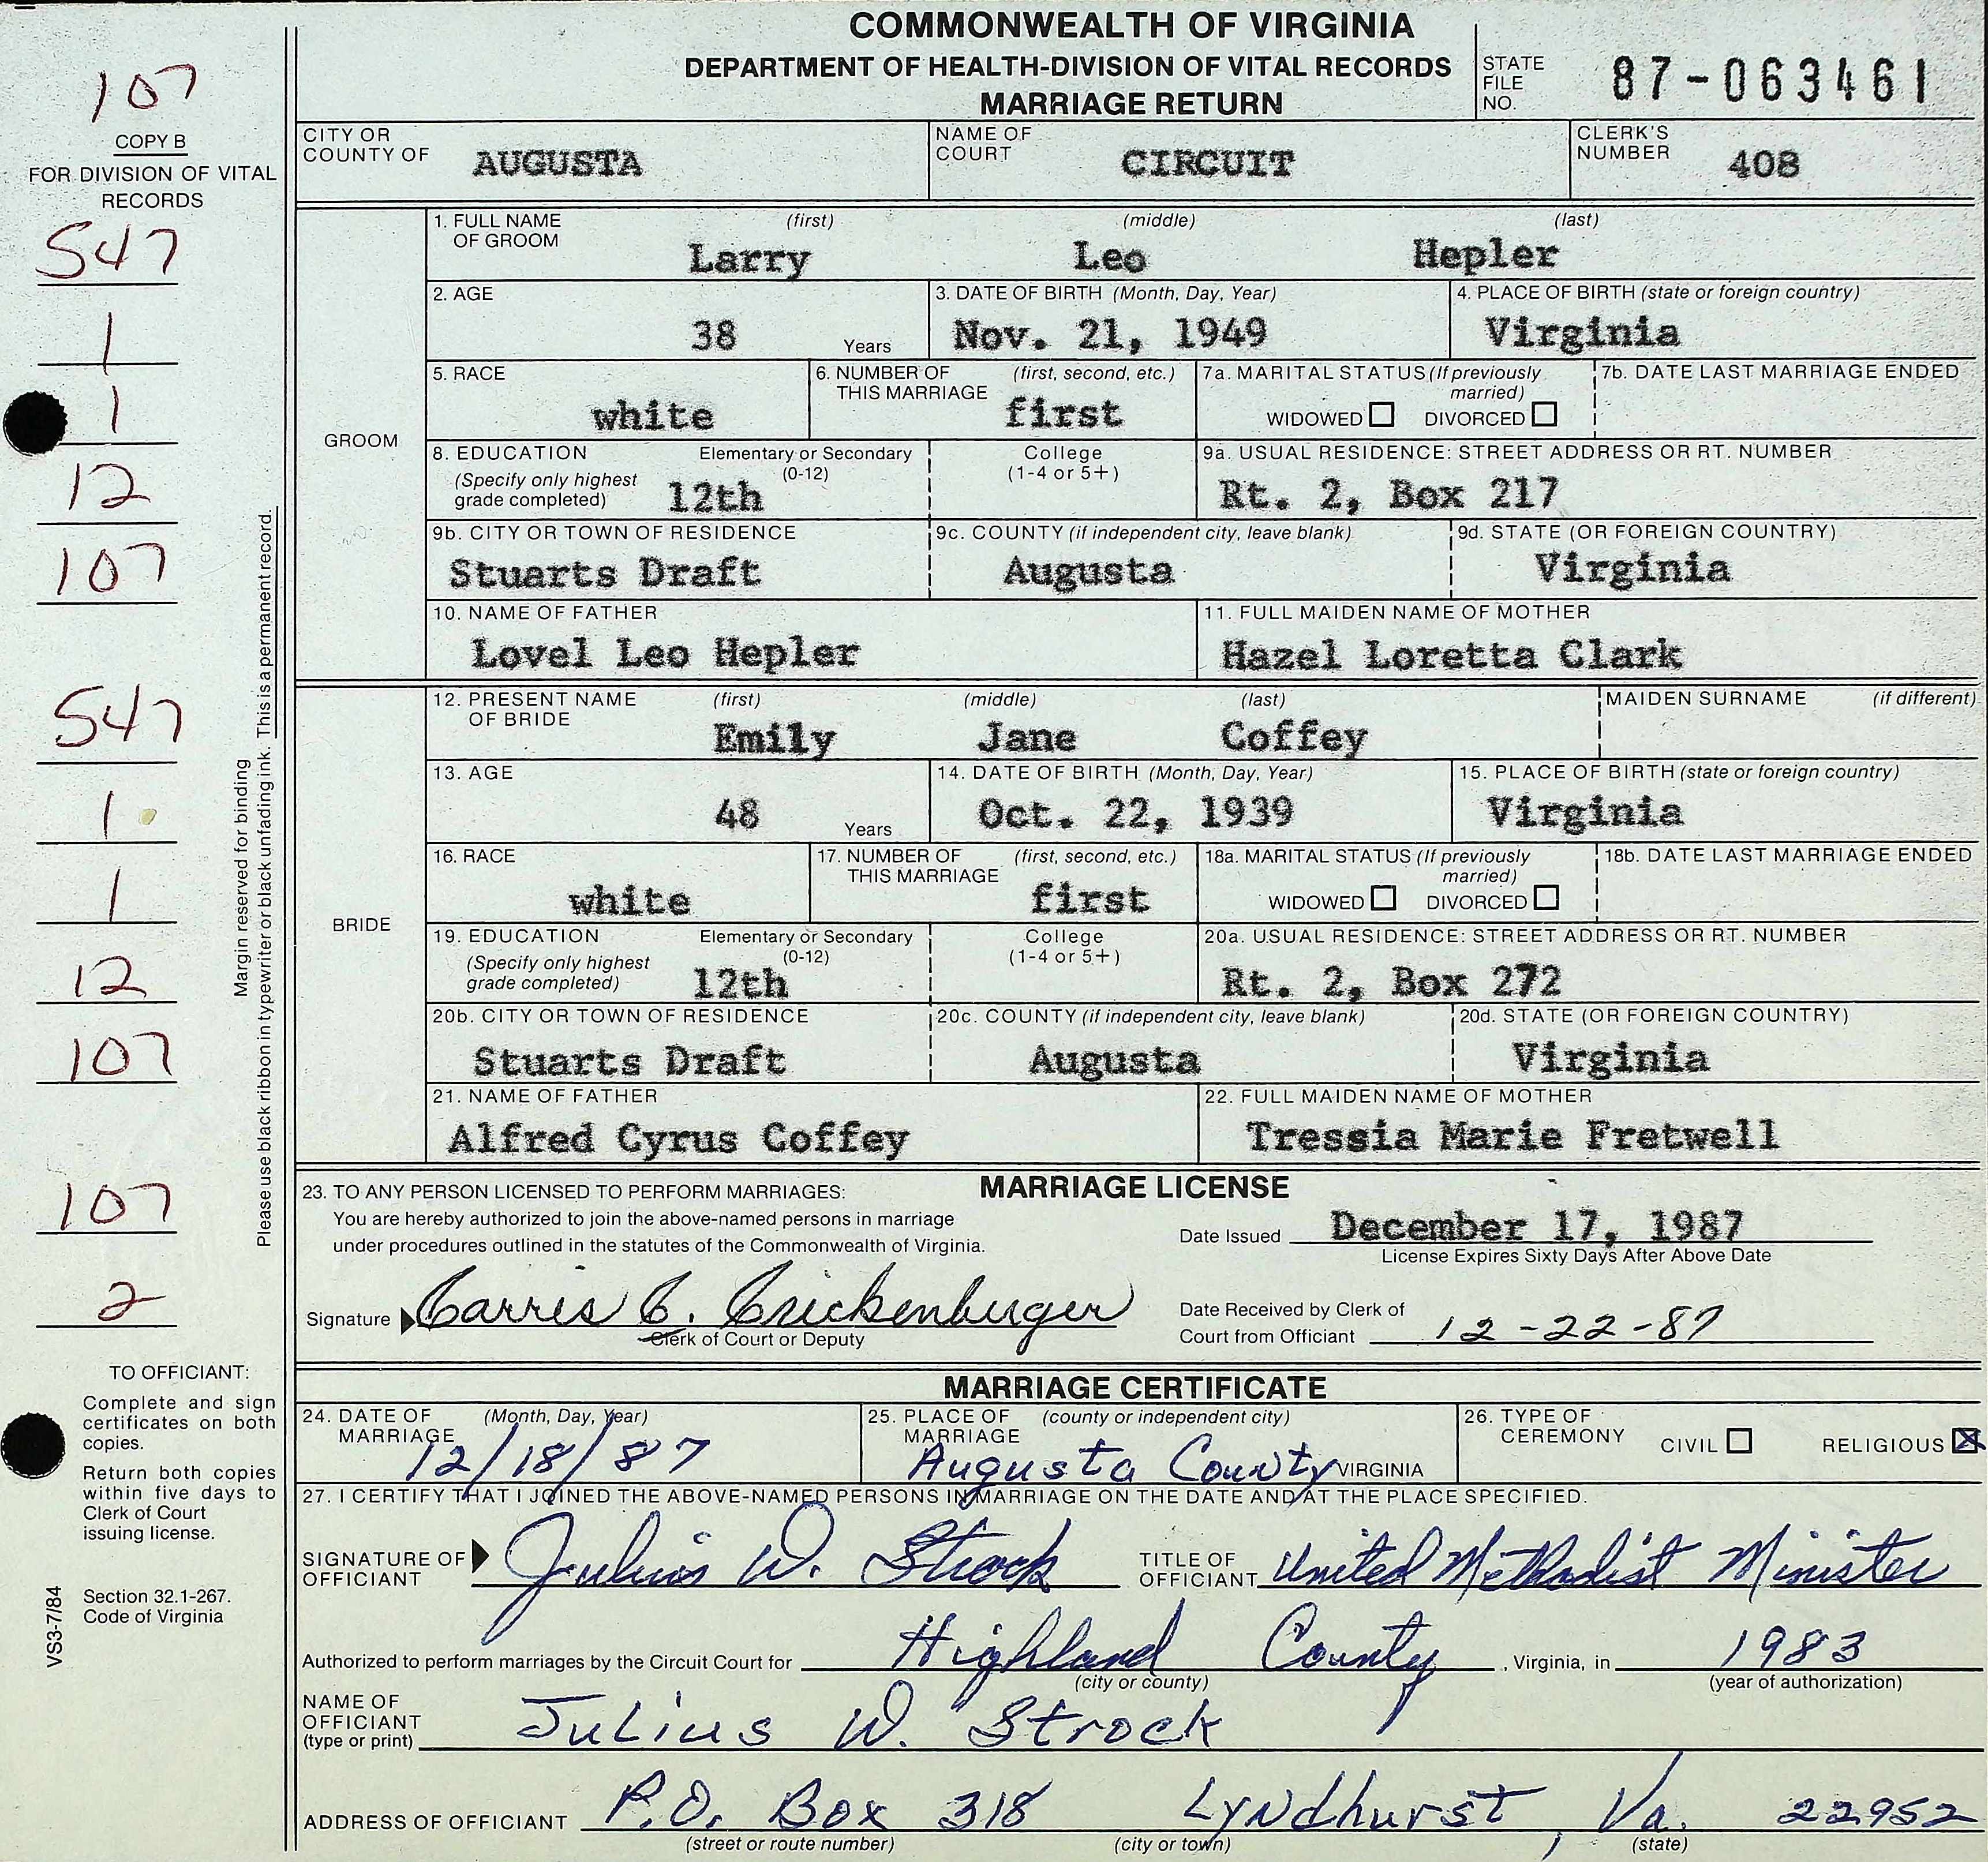 COMMONWEALTH OF VIRGINIA
DEPARTMENT OF HEALTH-DIVISION OF VITAL RECORDS
MARRIAGE RETURN
STATE FILE NO. 87-063461
107
COPY B
FOR DIVISION OF VITAL RECORDS
547
1
1
12
107
547
1
1
12
107
107
2
Margin reserved for binding
Please use black ribbon in typewriter or black unfading ink. This is a permanent record.
CITY OR COUNTY OF AUGUSTA
NAME OF COURT CIRCUIT
CLERK'S NUMBER 408
GROOM
1. FULL NAME OF GROOM (first) (middle) (last)
Larry Leo Hepler
2. AGE 38 Years
3. DATE OF BIRTH (Month, Day, Year) Nov. 21, 1949
4. PLACE OF BIRTH (state or foreign country) Virginia
5. RACE white
6. NUMBER OF THIS MARRIAGE (first, second, etc.) first
7a. MARITAL STATUS (If previously married) WIDOWED DIVORCED
7b. DATE LAST MARRIAGE ENDED
8. EDUCATION (Specify only highest grade completed) Elementary or Secondary (0-12) 12th College (1-4 or 5+)
9a. USUAL RESIDENCE: STREET ADDRESS OR RT. NUMBER Rt. 2, Box 217
9b. CITY OR TOWN OF RESIDENCE Stuarts Draft
9c. COUNTY (if independent city, leave blank) Augusta
9d. STATE (OR FOREIGN COUNTRY) Virginia
10. NAME OF FATHER Lovel Leo Hepler
11. FULL MAIDEN NAME OF MOTHER Hazel Loretta Clark
BRIDE
12. PRESENT NAME OF BRIDE (first) (middle) (last) MAIDEN SURNAME (if different)
Emily Jane Coffey
13. AGE 48 Years
14. DATE OF BIRTH (Month, Day, Year) Oct. 22, 1939
15. PLACE OF BIRTH (state or foreign country) Virginia
16. RACE white
17. NUMBER OF THIS MARRIAGE (first, second, etc.) first
18a. MARITAL STATUS (If previously married) WIDOWED DIVORCED
18b. DATE LAST MARRIAGE ENDED
19. EDUCATION (Specify only highest grade completed) Elementary or Secondary (0-12) 12th College (1-4 or 5+)
20a. USUAL RESIDENCE: STREET ADDRESS OR RT. NUMBER Rt. 2, Box 272
20b. CITY OR TOWN OF RESIDENCE Stuarts Draft
20c. COUNTY (if independent city, leave blank) Augusta
20d. STATE (OR FOREIGN COUNTRY) Virginia
21. NAME OF FATHER Alfred Cyrus Coffey
22. FULL MAIDEN NAME OF MOTHER Tressia Marie Fretwell
MARRIAGE LICENSE
23. TO ANY PERSON LICENSED TO PERFORM MARRIAGES:
You are hereby authorized to join the above-named persons in marriage
under procedures outlined in the statutes of the Commonwealth of Virginia.
Date Issued December 17, 1987
License Expires Sixty Days After Above Date
Signature Carris C. Crickenberger
Clerk of Court or Deputy
Date Received by Clerk of Court from Officiant 12-22-87
MARRIAGE CERTIFICATE
24. DATE OF MARRIAGE (Month, Day, Year) 12/18/87
25. PLACE OF MARRIAGE (county or independent city) Augusta County VIRGINIA
26. TYPE OF CEREMONY CIVIL RELIGIOUS X
27. I CERTIFY THAT I JOINED THE ABOVE-NAMED PERSONS IN MARRIAGE ON THE DATE AND AT THE PLACE SPECIFIED.
SIGNATURE OF OFFICIANT Julius W. Strock
TITLE OF OFFICIANT United Methodist Minister
Authorized to perform marriages by the Circuit Court for Highland County, Virginia, in 1983
(city or county) (year of authorization)
NAME OF OFFICIANT (type or print) Julius W. Strock
ADDRESS OF OFFICIANT P.O. Box 318 Lyndhurst, Va. 22952
(street or route number) (city or town) (state)
TO OFFICIANT:
Complete and sign
certificates on both
copies.
Return both copies
within five days to
Clerk of Court
issuing license.
Section 32.1-267.
Code of Virginia
VS3-7/84